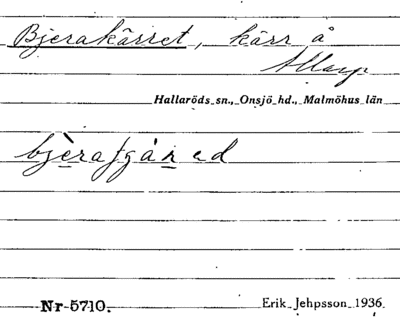 Bjerakärret, kärr å
Allarp
Hallaröds sn., Onsjö hd., Malmöhus län
bjèrafgåṉed
Nr 5710.
Erik Jehpsson 1936